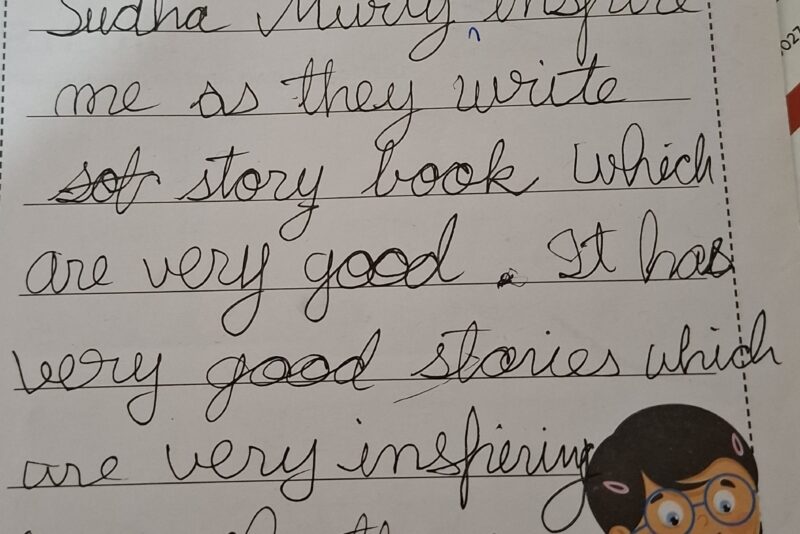 Sudha Murty inspire
me as they write
story book which
are very good. It has
very good stories which
are very inspiering